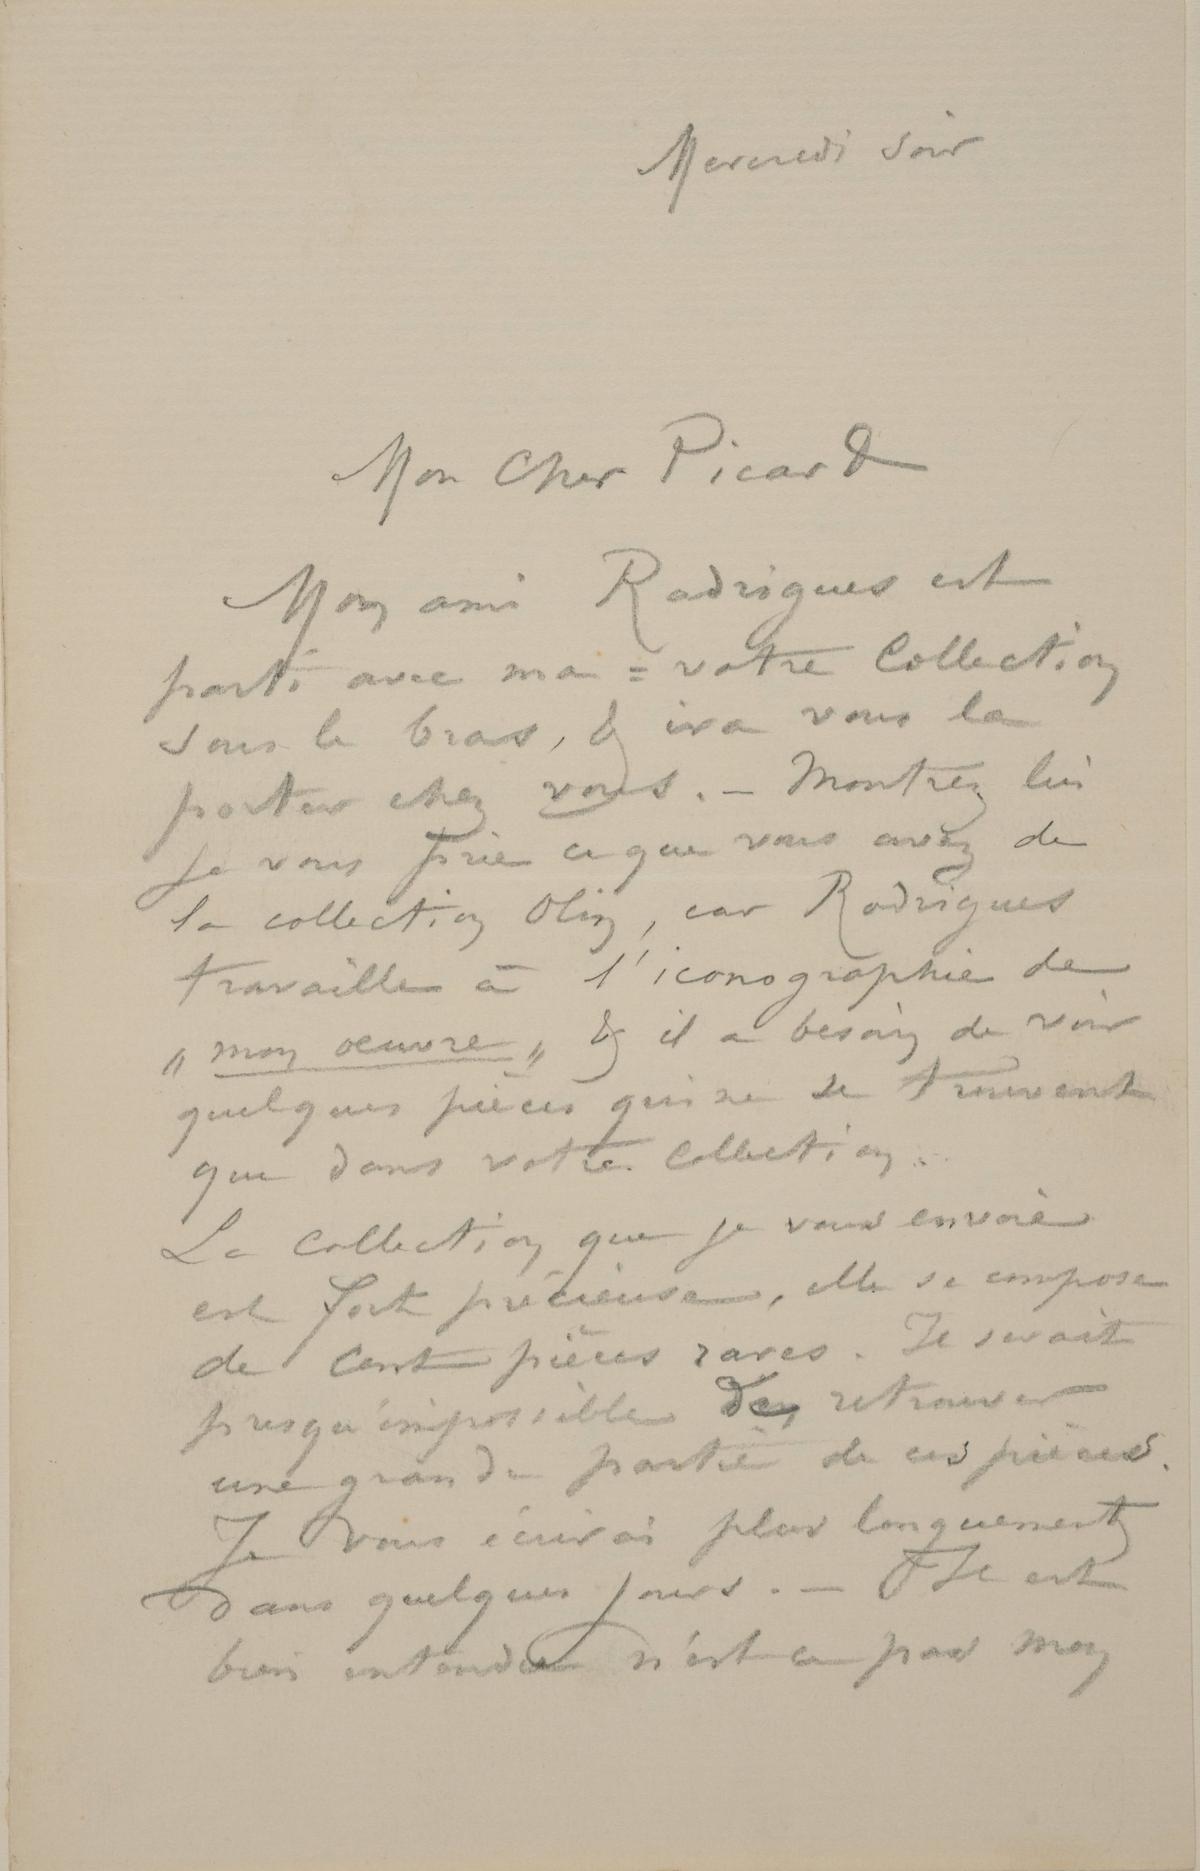 Mercredi soir
Mon Cher Picard
Mon ami Rodrigues est
parti avec ma = votre Collection
sous le bras, & ira vous la
porter chez vous. – Montrez lui
je vous prie ce que vous avez de
la collection Olin, car Rodrigues
travaille à l'iconographie de
„ mon oeuvre „ & il a besoin de voir
quelques pièces qui ne se trouvent
que dans votre Collection.
La Collection que je vous envoie
est fort précieuse, elle se compose
de Cent pièces rares. Il serait
presqu'impossible d'en retrouver
une grande partie de ces pièces.
Je vous écrirai plus longuement
Dans quelques jours. – Il est
bien entendu n'est ce pas mon